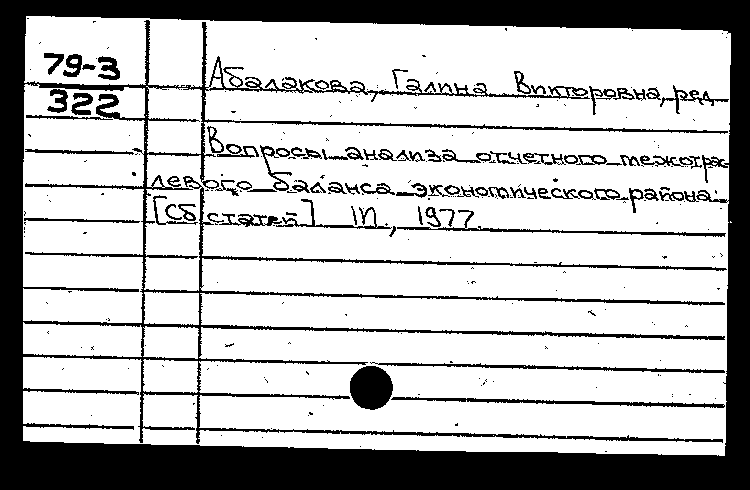 79-3
322
Абалакова, Галина Викторовна, ред.
Вопросы анализа отчетного межотрас
левого баланса экономического района:
[Сб статей] 1977.